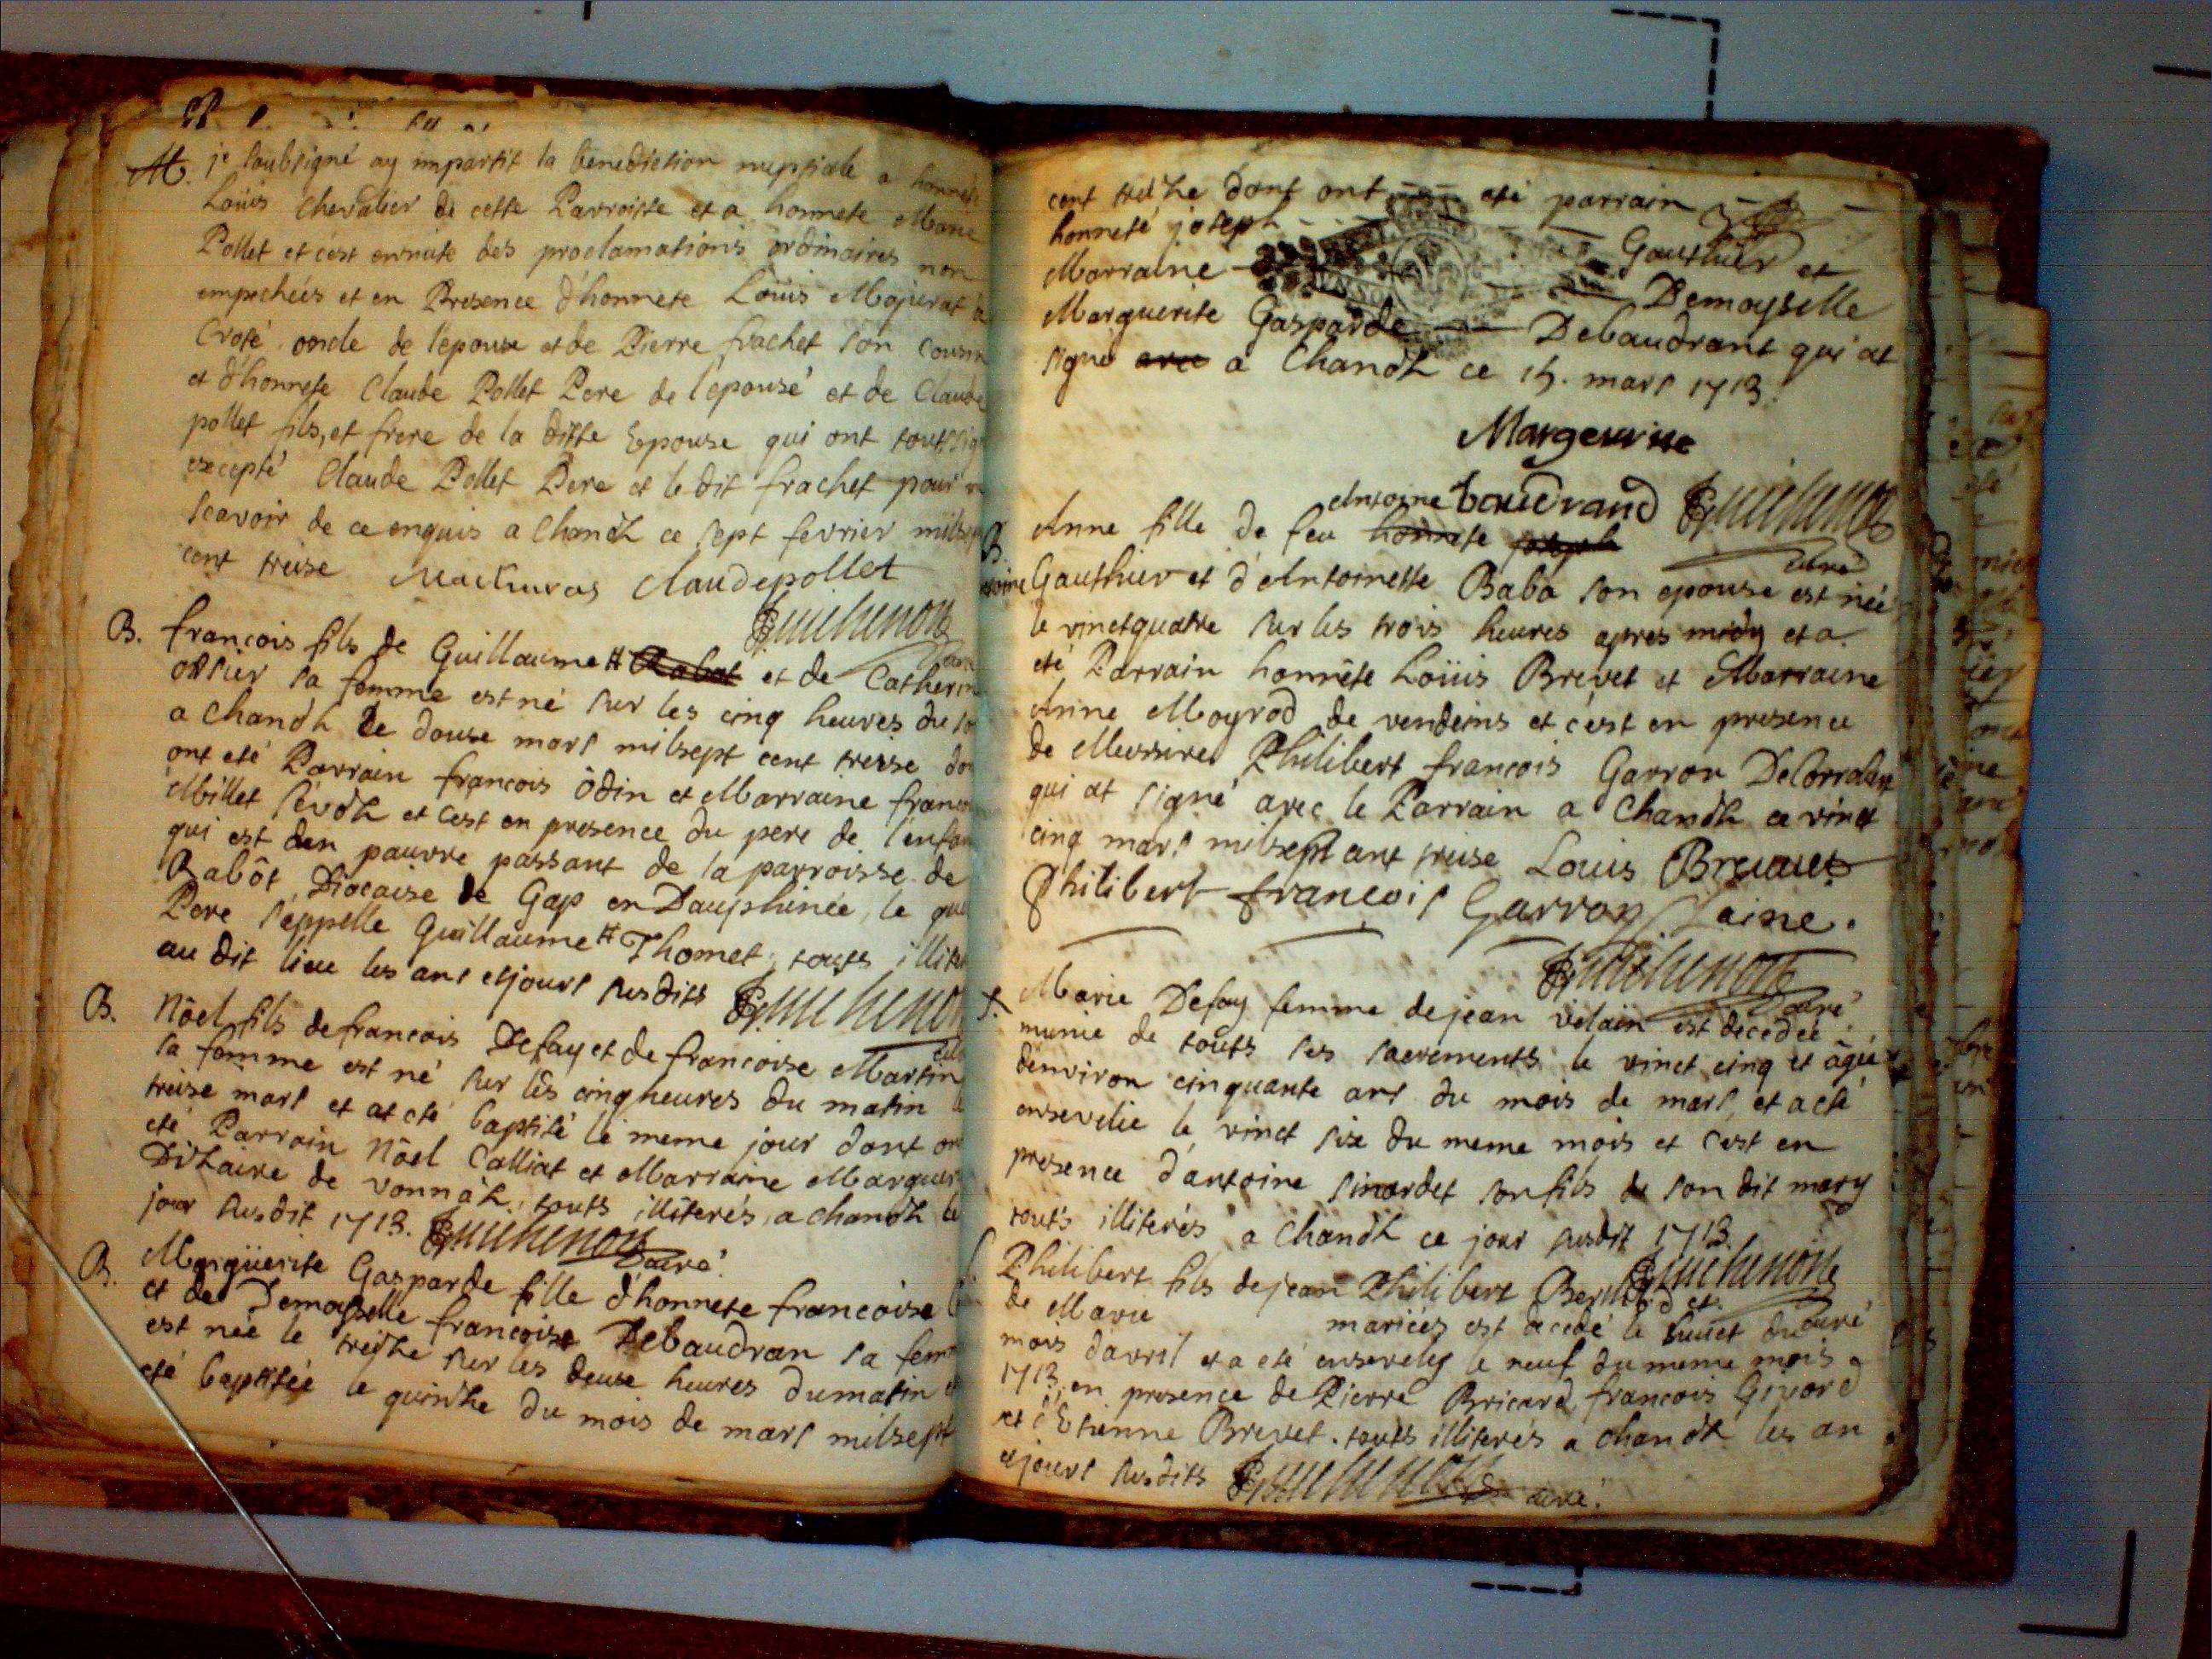 M. je soubsigné ay impartit la benediction nuptiale a honnete
Loüis Chevalier de cette Parroisse et a honnete Marie
Pollet et c'est ensuite des proclamations ordinaires non
empechées et en Presence d'honnete Loüis Mojurat
Crosé oncle de l'epouse et de Pierre frachet son cousin
et d'honnete Claude Pollet Pere de l'epouse et de Claude
pollet fils, et frere de la ditte Epouse qui ont touts
excepté Claude Pollet Pere et le dit frachet pour
scavoir de ce enquis a Chandh ce sept fevrier
cent treise claudepollet
Guichenon
B. francois fils de Guillaume # Rabot et de Catherin
orsier sa femme est né sur les cinq heures du
a chandh le douse mars milsept cent treise
ont eté Parrain francois Odin et Marraine
Millet et c'est en presence du pere de
qui est un pauvre passant de la parroisse de
Rabôt, Diocaise de Gap en Dauphinée, le
Pere s'eppelle Guillaume # Thomet, touts
au dit lieu les ans et jours susdits Guichenon
B. Nôel fils de francois Defay et de francoise Martin
sa femme est né sur les cinq heures du matin
treise mars et at eté baptisé le meme jour dont
eté Parrain Nôel Calliat et Marraine
de vonnàh, touts illiterés, a chandh le
jour susdit 1713. Guichenon curé
B. Margüerite Gasparde fille d'honnete francoise
et de Demoyselle francoise Debaudran sa
est née le treitze sur les deuse heures du matin
eté baptisée le quinthe du mois de mars milsept
cent treithe dont ont eté parrain
honneté joseph Gauthier et
Marraine Demoyselle
Marguerite Gasparde Debaudrant qui at
signé avec a Chandh ce 15. mars 1713.
Margeurite
baudrand Guichenon
curé
Antoine
B. Anne fille de feu honnete joseph
Gauthier et d'Antoinette Baba son epouse est née
le vinctquatre sur les trois heures apres midy et a
eté Parrain honnête Loüis Brevet et Marraine
Anne Moyrod de vendeins et c'est en presence
de Messire Philibert francois Garron
qui at signé avec le Parrain a Chandh ce vinct
cinq mars milsept cent treise Louis
Philibert francois Garron laine.
Guichenon
curé
S. Marie Defay femme de jean velain est decedée
munie de touts ses sacrements le vinct cinq et âgée
denviron cinquante ans du mois de mars, et a eté
ensevelie le vinct six du meme mois et c'est en
presence d'antoine sinardet son fils de son dit mary
touts illiterés a Chandh ce jour susdit 1713.
Guichenon
curé
Philibert fils de jean Philibert et
de Marie mariées est decedé le huict du
mois davril et a eté ensevely le neuf du meme mois
1713, en presence de Pierre Bricard, francois Givord
et d'Etienne Brevet. touts illiterés a chandh les an
et jours susdits Guichenon curé.